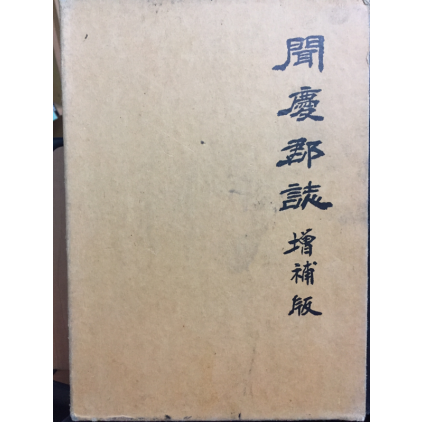 聞慶郡誌 增補版